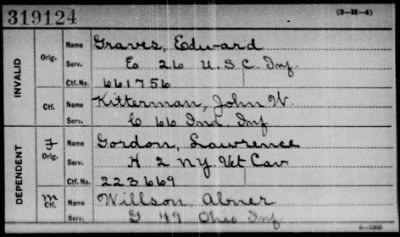 319124 (3-H-4)
INVALID
Orig. Name Graves, Edward
Serv. E 26 U.S.C. Inf.
Ctf. No. 661756
Ctf. Name Kitterman, John W.
Serv. C 66 Ind. Inf
DEPENDENT
Orig. Name Gordon, Lawrence
Serv. H 2 NY Vet Cav
Ctf. No. 223669
m Ctf. Name Willson Abner
Serv. G 49 Ohio Inf